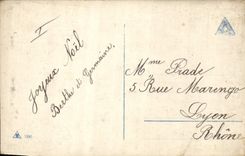 I
Joyeux Noël
Berthe et Germaine.
Mme Prade
5 Rue Marengo
Lyon
Rhône